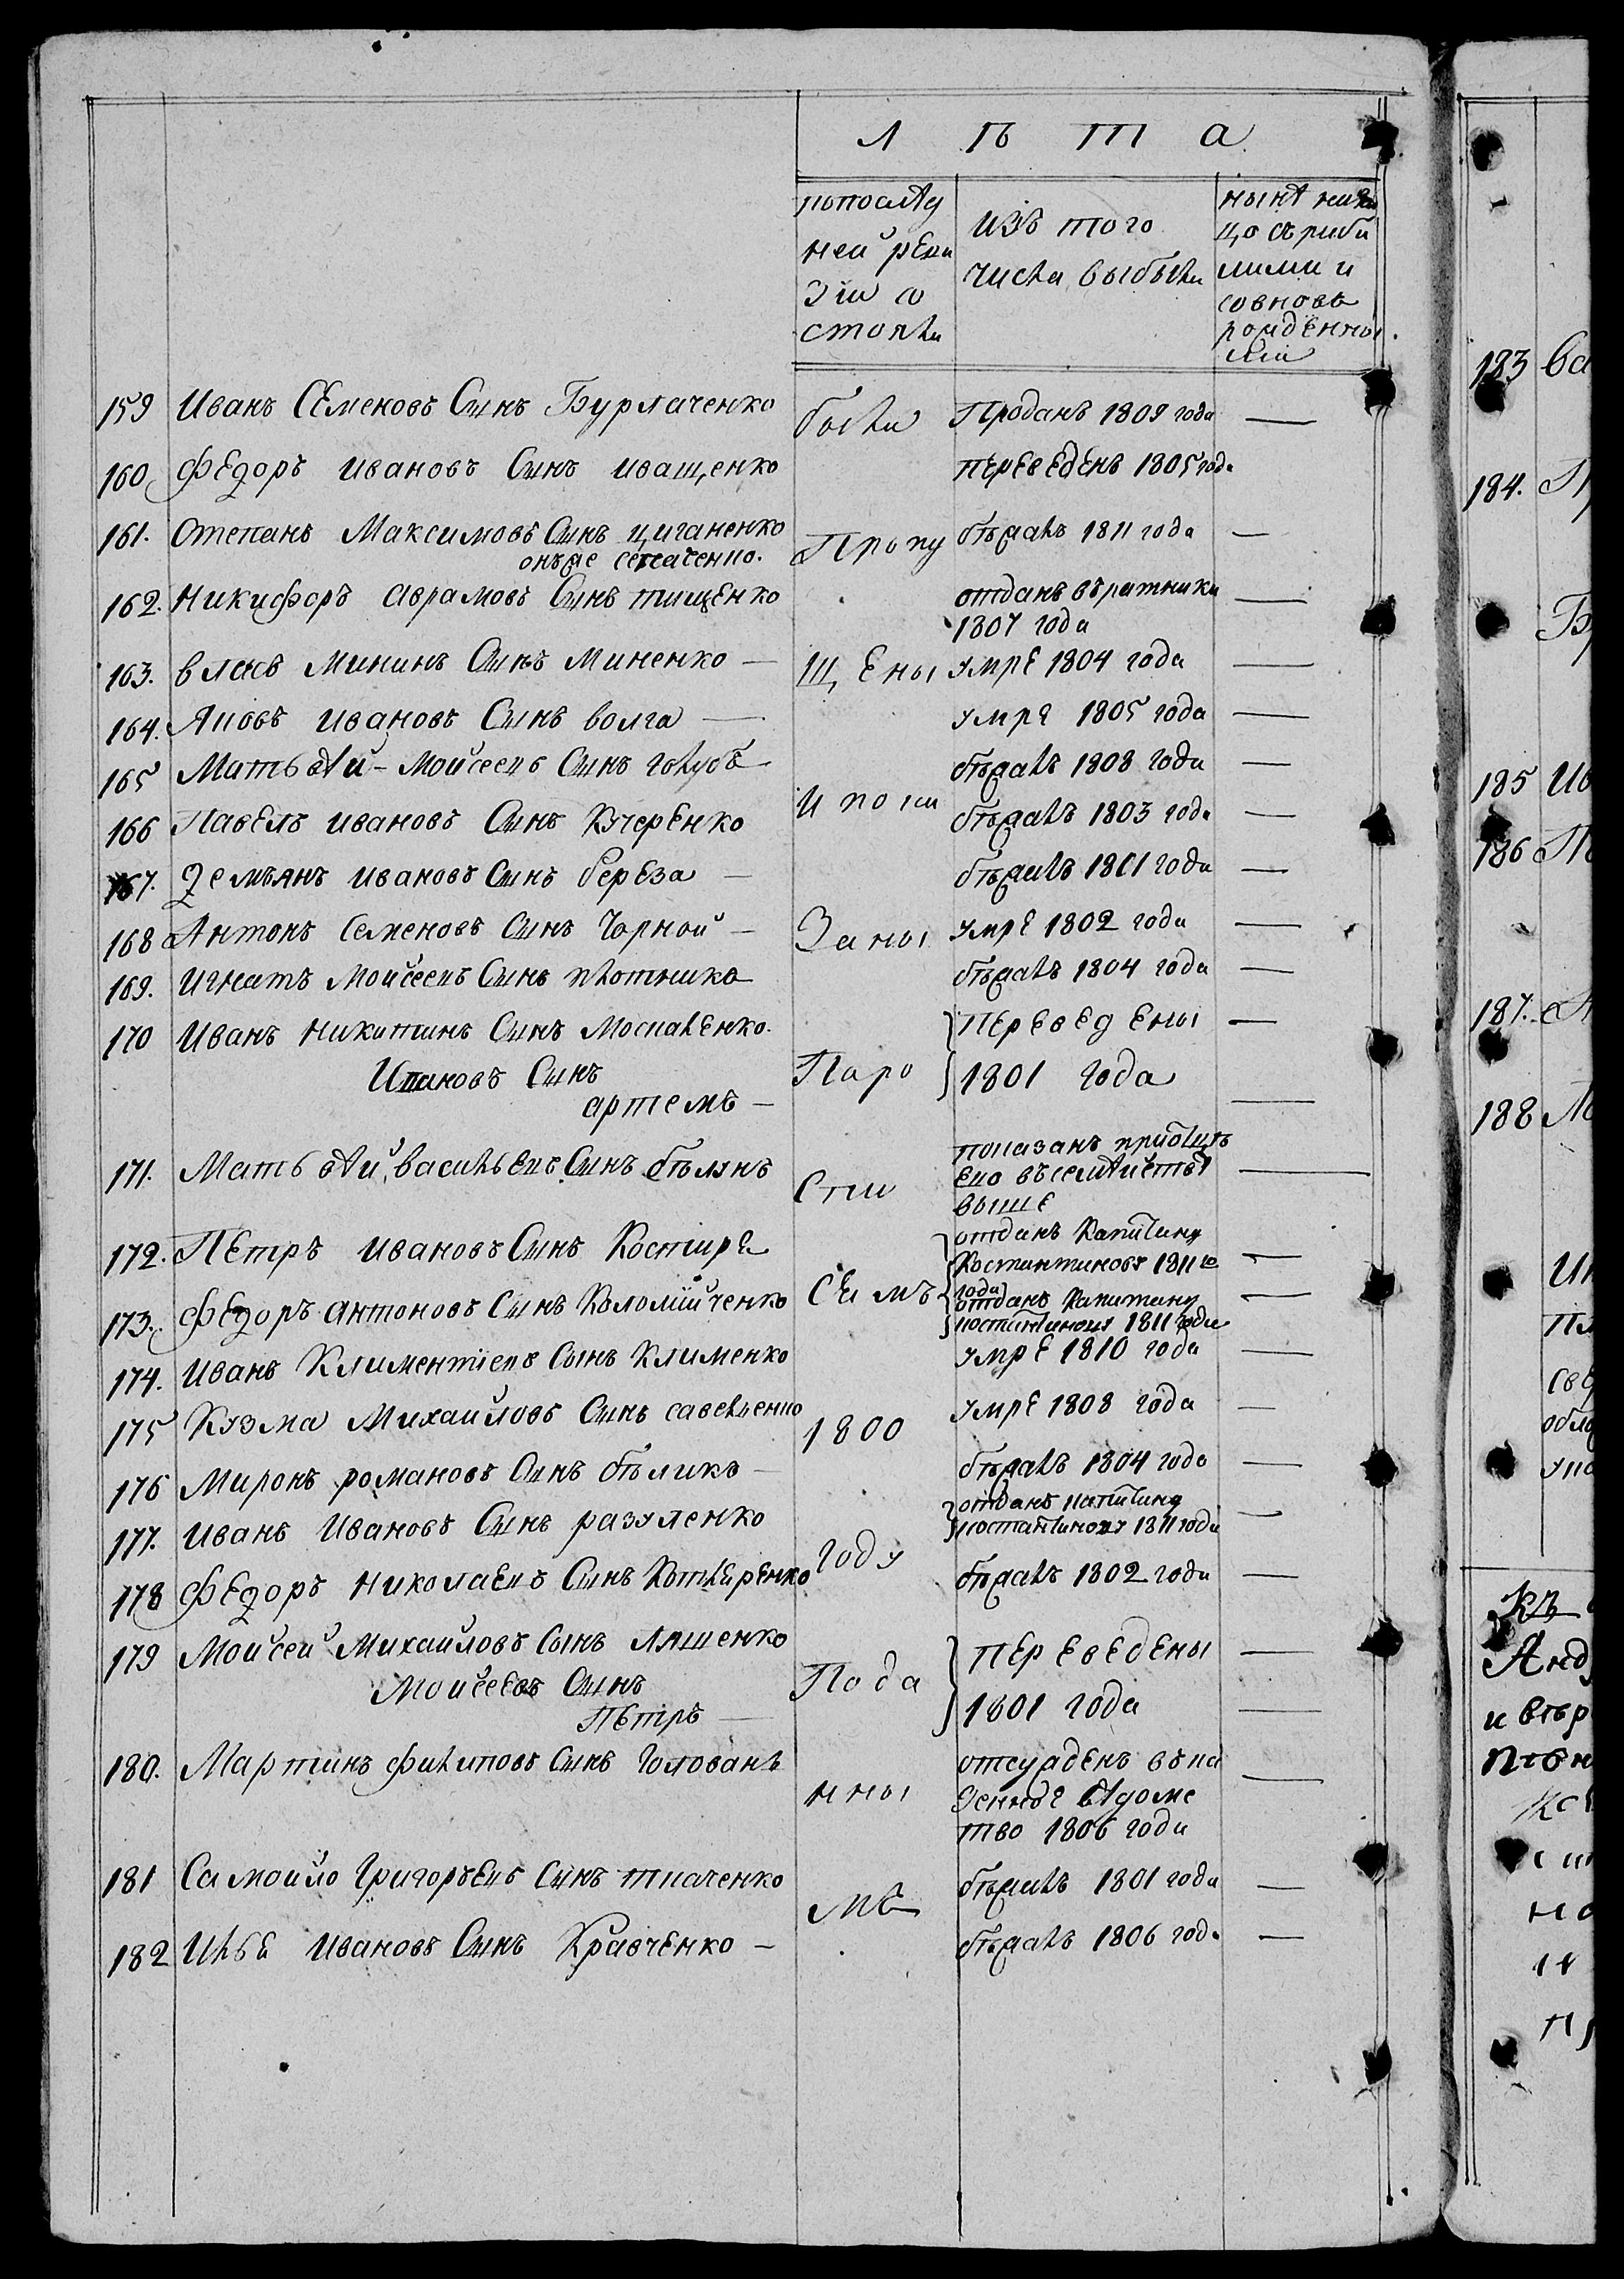 Л ѣ т а
попослѣд
ней реви
зіи со
стояли
изъ того
числа выбыли
нынѣ
цо съ прибы
лыми и
совновь
рожденны
ми
159 Иванъ Семеновъ Сынъ Бурлаченко
были
Проданъ 1809 года —
160 Федоръ ивановъ Сынъ иващенко
переведенъ 1805 года
161. Степанъ Максимовъ Сынъ циганенко
онъже
Пропу
бѣжалъ 1811 года —
162. Никифоръ аврамовъ Сынъ тищенко
отданъ въ ратники
1807 года —
163. власъ Мининъ Сынъ Миненко —
щены
умре 1804 года —
164. Яковъ ивановъ Сынъ волга —
умре 1805 года —
165 Матьвѣй Мойсеевъ Сынъ голубъ
бѣжалъ 1808 года —
166 Павелъ ивановъ Сынъ Кучеренко
и пока
бѣжалъ 1803 года —
167. Демьянъ ивановъ Сынъ береза —
бѣжалъ 1801 года —
168 Антонъ Семеновъ Сынъ Чорной —
заны
умре 1802 года —
169. Игнатъ Мойсеевъ Сынъ плотника
бѣжалъ 1804 года —
170 Иванъ Никитинъ Сынъ Москаленко.
Ивановъ Сынъ
артемъ —
Паро
переведены —
1801 года —
171. Матьвѣй васильевъ Сынъ бѣлянъ
сти
показанъ прибылъ
ево въ семѣйствѣ
выше —
172. Петръ ивановъ Сынъ Костиря
отданъ Капитану
Костантинову 1811 го
года —
173. Федоръ антоновъ Сынъ Коломийченко
съимъ
отданъ Капитану
костантинову 1811 года —
174. Иванъ Климентіевъ Сынъ Клименко
умре 1810 года —
175 Кузма Михайловъ Сынъ савельенко
1800
умре 1808 года —
176 Миронъ романовъ Сынъ бѣликъ —
бѣжалъ 1804 года —
177. Иванъ Ивановъ Сынъ разуленко
отданъ капитану
костантинову 1811 года —
178 Федоръ Николаевъ Сынъ Котляренко
году
бѣжалъ 1802 года —
179 Мойсей Михайловъ Сынъ Ляшенко
Мойсеевъ Сынъ
Петръ —
Пода
переведены —
1801 года —
180. Мартинъ филиповъ Сынъ Голованъ
нны
отсужденъ въ ка
зенное вѣдомс
тво 1806 года —
181 Самойло Григорьевъ Сынъ ткаченко
мъ
бѣжалъ 1801 года —
182 Илья Ивановъ Сынъ Кравченко —
бѣжалъ 1806 года —
183 ва
184.
185 Ив
186
187.
188
Анд